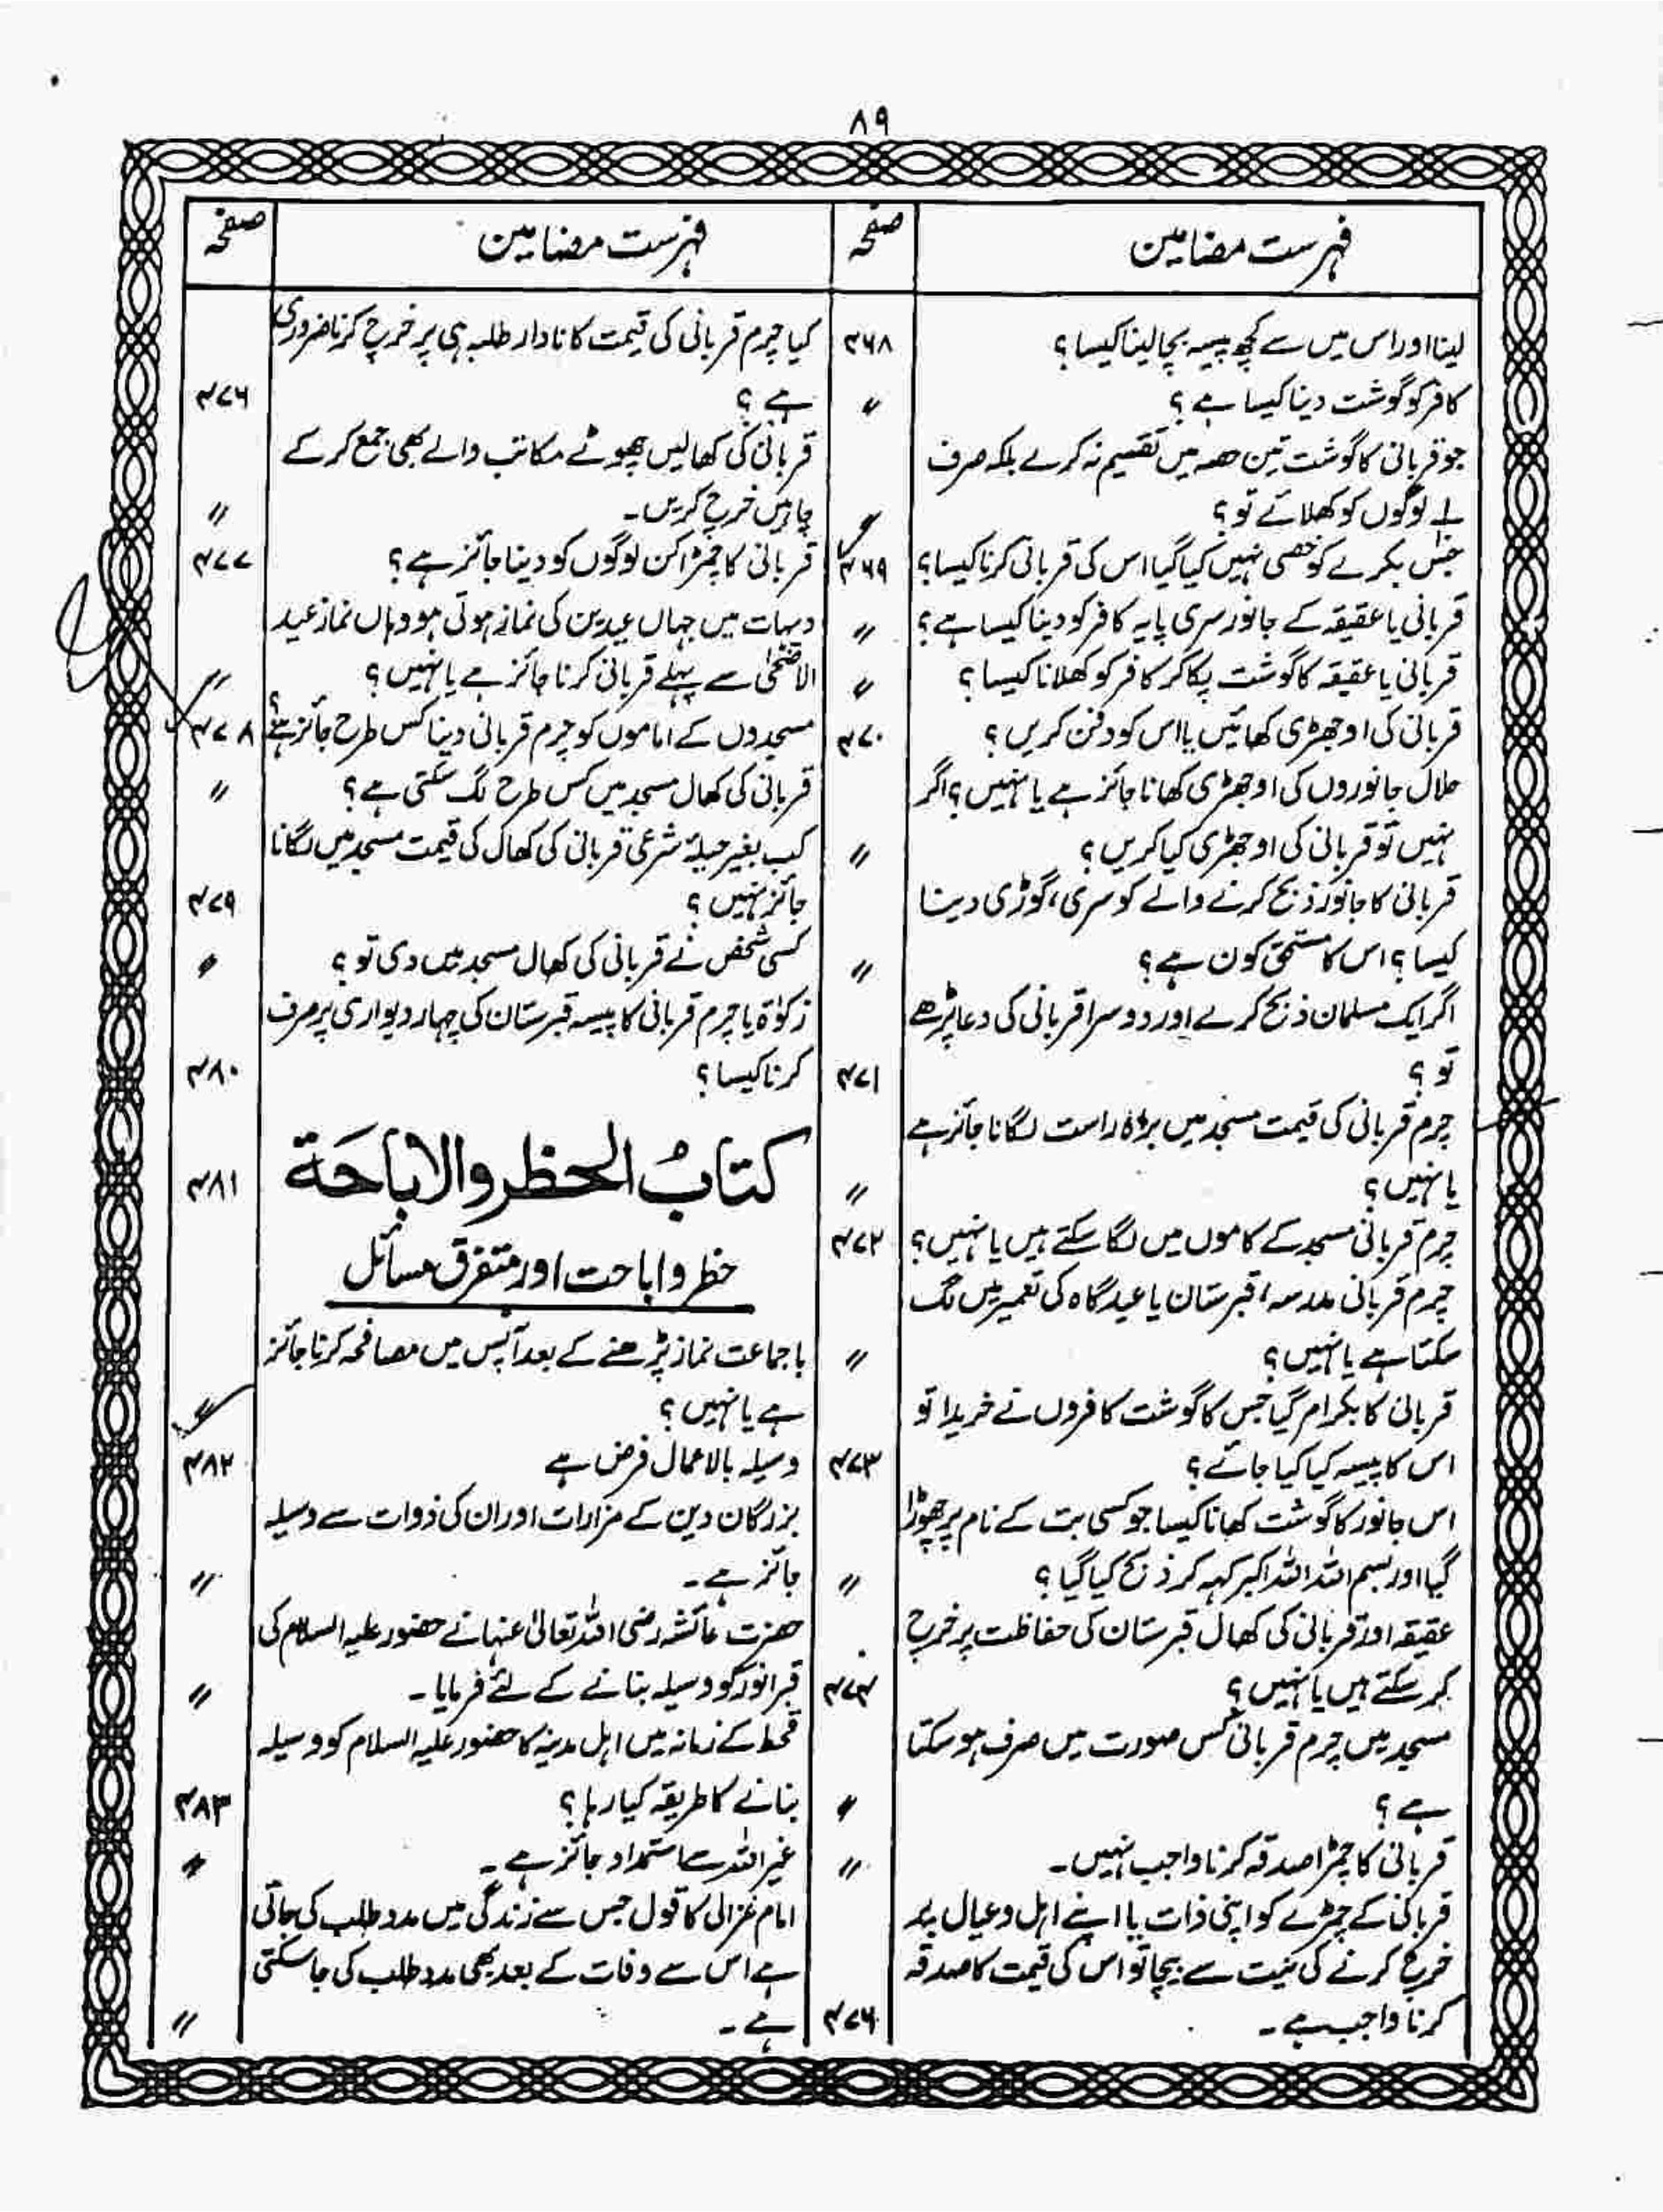 ۸۹
فہرست مضامین
صفحہ
لینا اور اس میں سے کچھ پیسہ بچا لینا کیسا؟ ۴۶۸
کافر کو گوشت دینا کیسا ہے؟ 〃
جو قربانی کا گوشت تین حصہ میں تقسیم نہ کرے بلکہ صرف
لوگوں کو کھلائے تو؟ 〃
جس بکرے کو خصی نہیں کیا گیا اس کی قربانی کرنا کیسا؟ ۴۶۹
قربانی یا عقیقہ کے جانور سری پایہ کافر کو دینا کیسا ہے؟ 〃
قربانی یا عقیقہ کا گوشت پکا کر کافر کو کھلانا کیسا؟ 〃
قربانی کی اوجھڑی کھائیں یا اس کو دفن کریں؟ ۴۷۰
حلال جانوروں کی اوجھڑی کھانا جائز ہے یا نہیں؟ اگر
نہیں تو قربانی کی اوجھڑی کیا کریں؟ 〃
قربانی کا جانور ذبح کرنے والے کو سری، گوڑی دینا
کیسا؟ اس کا مستحق کون ہے؟ 〃
اگر ایک مسلمان ذبح کرے اور دوسرا قربانی کی دعا پڑھے
تو؟ ۴۷۱
چرم قربانی کی قیمت مسجد میں براہ راست لگانا جائز ہے
یا نہیں؟ 〃
چرم قربانی مسجد کے کاموں میں لگا سکتے ہیں یا نہیں؟ ۴۷۲
چرم قربانی مدرسہ، قبرستان یا عیدگاہ کی تعمیر میں لگ
سکتا ہے یا نہیں؟ 〃
قربانی کا بکرا مر گیا جس کا گوشت کافروں نے خریدا تو
اس کا پیسہ کیا کیا جائے؟ ۴۷۳
اس جانور کا گوشت کھانا کیسا جو کسی بت کے نام پر چھوڑا
گیا اور بسم اللہ اللہ اکبر کہہ کر ذبح کیا گیا؟ 〃
عقیقہ اور قربانی کی کھال قبرستان کی حفاظت پر خرچ
کر سکتے ہیں یا نہیں؟ ۴۷۴
مسجد میں چرم قربانی کس صورت میں صرف ہو سکتا
ہے؟ 〃
قربانی کا چمڑا صدقہ کرنا واجب نہیں۔ 〃
قربانی کے چمڑے کو اپنی ذات یا اپنے اہل و عیال پر
خرچ کرنے کی نیت سے بیچا تو اس کی قیمت کا صدقہ
کرنا واجب ہے۔ ۴۷۶
فہرست مضامین
صفحہ
کیا چرم قربانی کی قیمت کا نادار طلبہ ہی پر خرچ کرنا ضروری
ہے؟ ۴۷۶
قربانی کی کھالیں چھوٹے مکاتب والے بھی جمع کر کے
چاہیں خرچ کریں۔ 〃
قربانی کا چمڑا کن لوگوں کو دینا جائز ہے؟ ۴۷۷
دیہات میں جہاں عیدین کی نماز ہوتی ہو وہاں نماز عید
الاضحیٰ سے پہلے قربانی کرنا جائز ہے یا نہیں؟ 〃
مسجدوں کے اماموں کو چرم قربانی دینا کس طرح جائز ہے؟ ۴۷۸
قربانی کی کھال مسجد میں کس طرح لگ سکتی ہے؟ 〃
کب بغیر حیلۂ شرعی قربانی کی کھال کی قیمت مسجد میں لگانا
جائز نہیں؟ ۴۷۹
کسی شخص نے قربانی کی کھال مسجد میں دی تو؟ 〃
زکوٰۃ یا چرم قربانی کا پیسہ قبرستان کی چہار دیواری پر صرف
کرنا کیسا؟ ۴۸۰
کتابُ الحظر والاباحَة ۴۸۱
حظر و اباحت اور متفرق مسائل
باجماعت نماز پڑھنے کے بعد آپس میں مصافحہ کرنا جائز
ہے یا نہیں؟ 〃
وسیلہ بالاعمال فرض ہے ۴۸۲
بزرگان دین کے مزارات اور ان کی ذوات سے وسیلہ
جائز ہے۔ 〃
حضرت عائشہ رضی اللہ تعالیٰ عنہا نے حضور علیہ السلام کی
قبر انور کو وسیلہ بنانے کے لئے فرمایا۔ 〃
قحط کے زمانہ میں اہل مدینہ کا حضور علیہ السلام کو وسیلہ
بنانے کا طریقہ کیا رہا؟ ۴۸۳
غیر اللہ سے استمداد جائز ہے۔ 〃
امام غزالی کا قول جس سے زندگی میں مدد طلب کی جاتی
ہے اس سے وفات کے بعد بھی مدد طلب کی جا سکتی
ہے۔ 〃